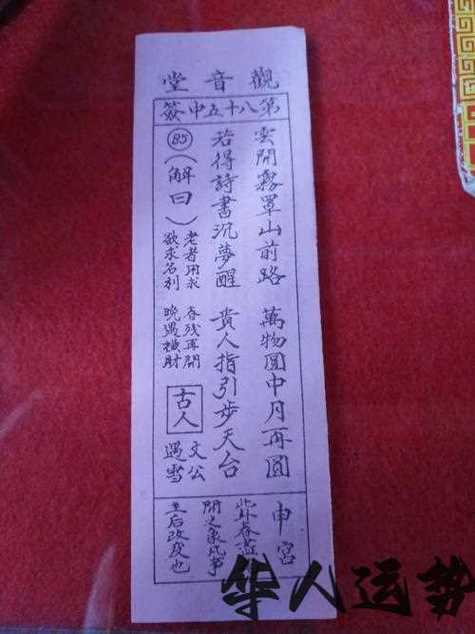 觀音堂
第八十五中簽
雲開霧罩山前路 萬物圓中月再圓
若得詩書沉夢醒 貴人指引步天台
85
（解曰）
老者用求 春殘再開
欲求名利 晚遇橫財
古人
文公
遇雪
申宮
此卦春盡
開之象凡事
先后改變也
华人运势